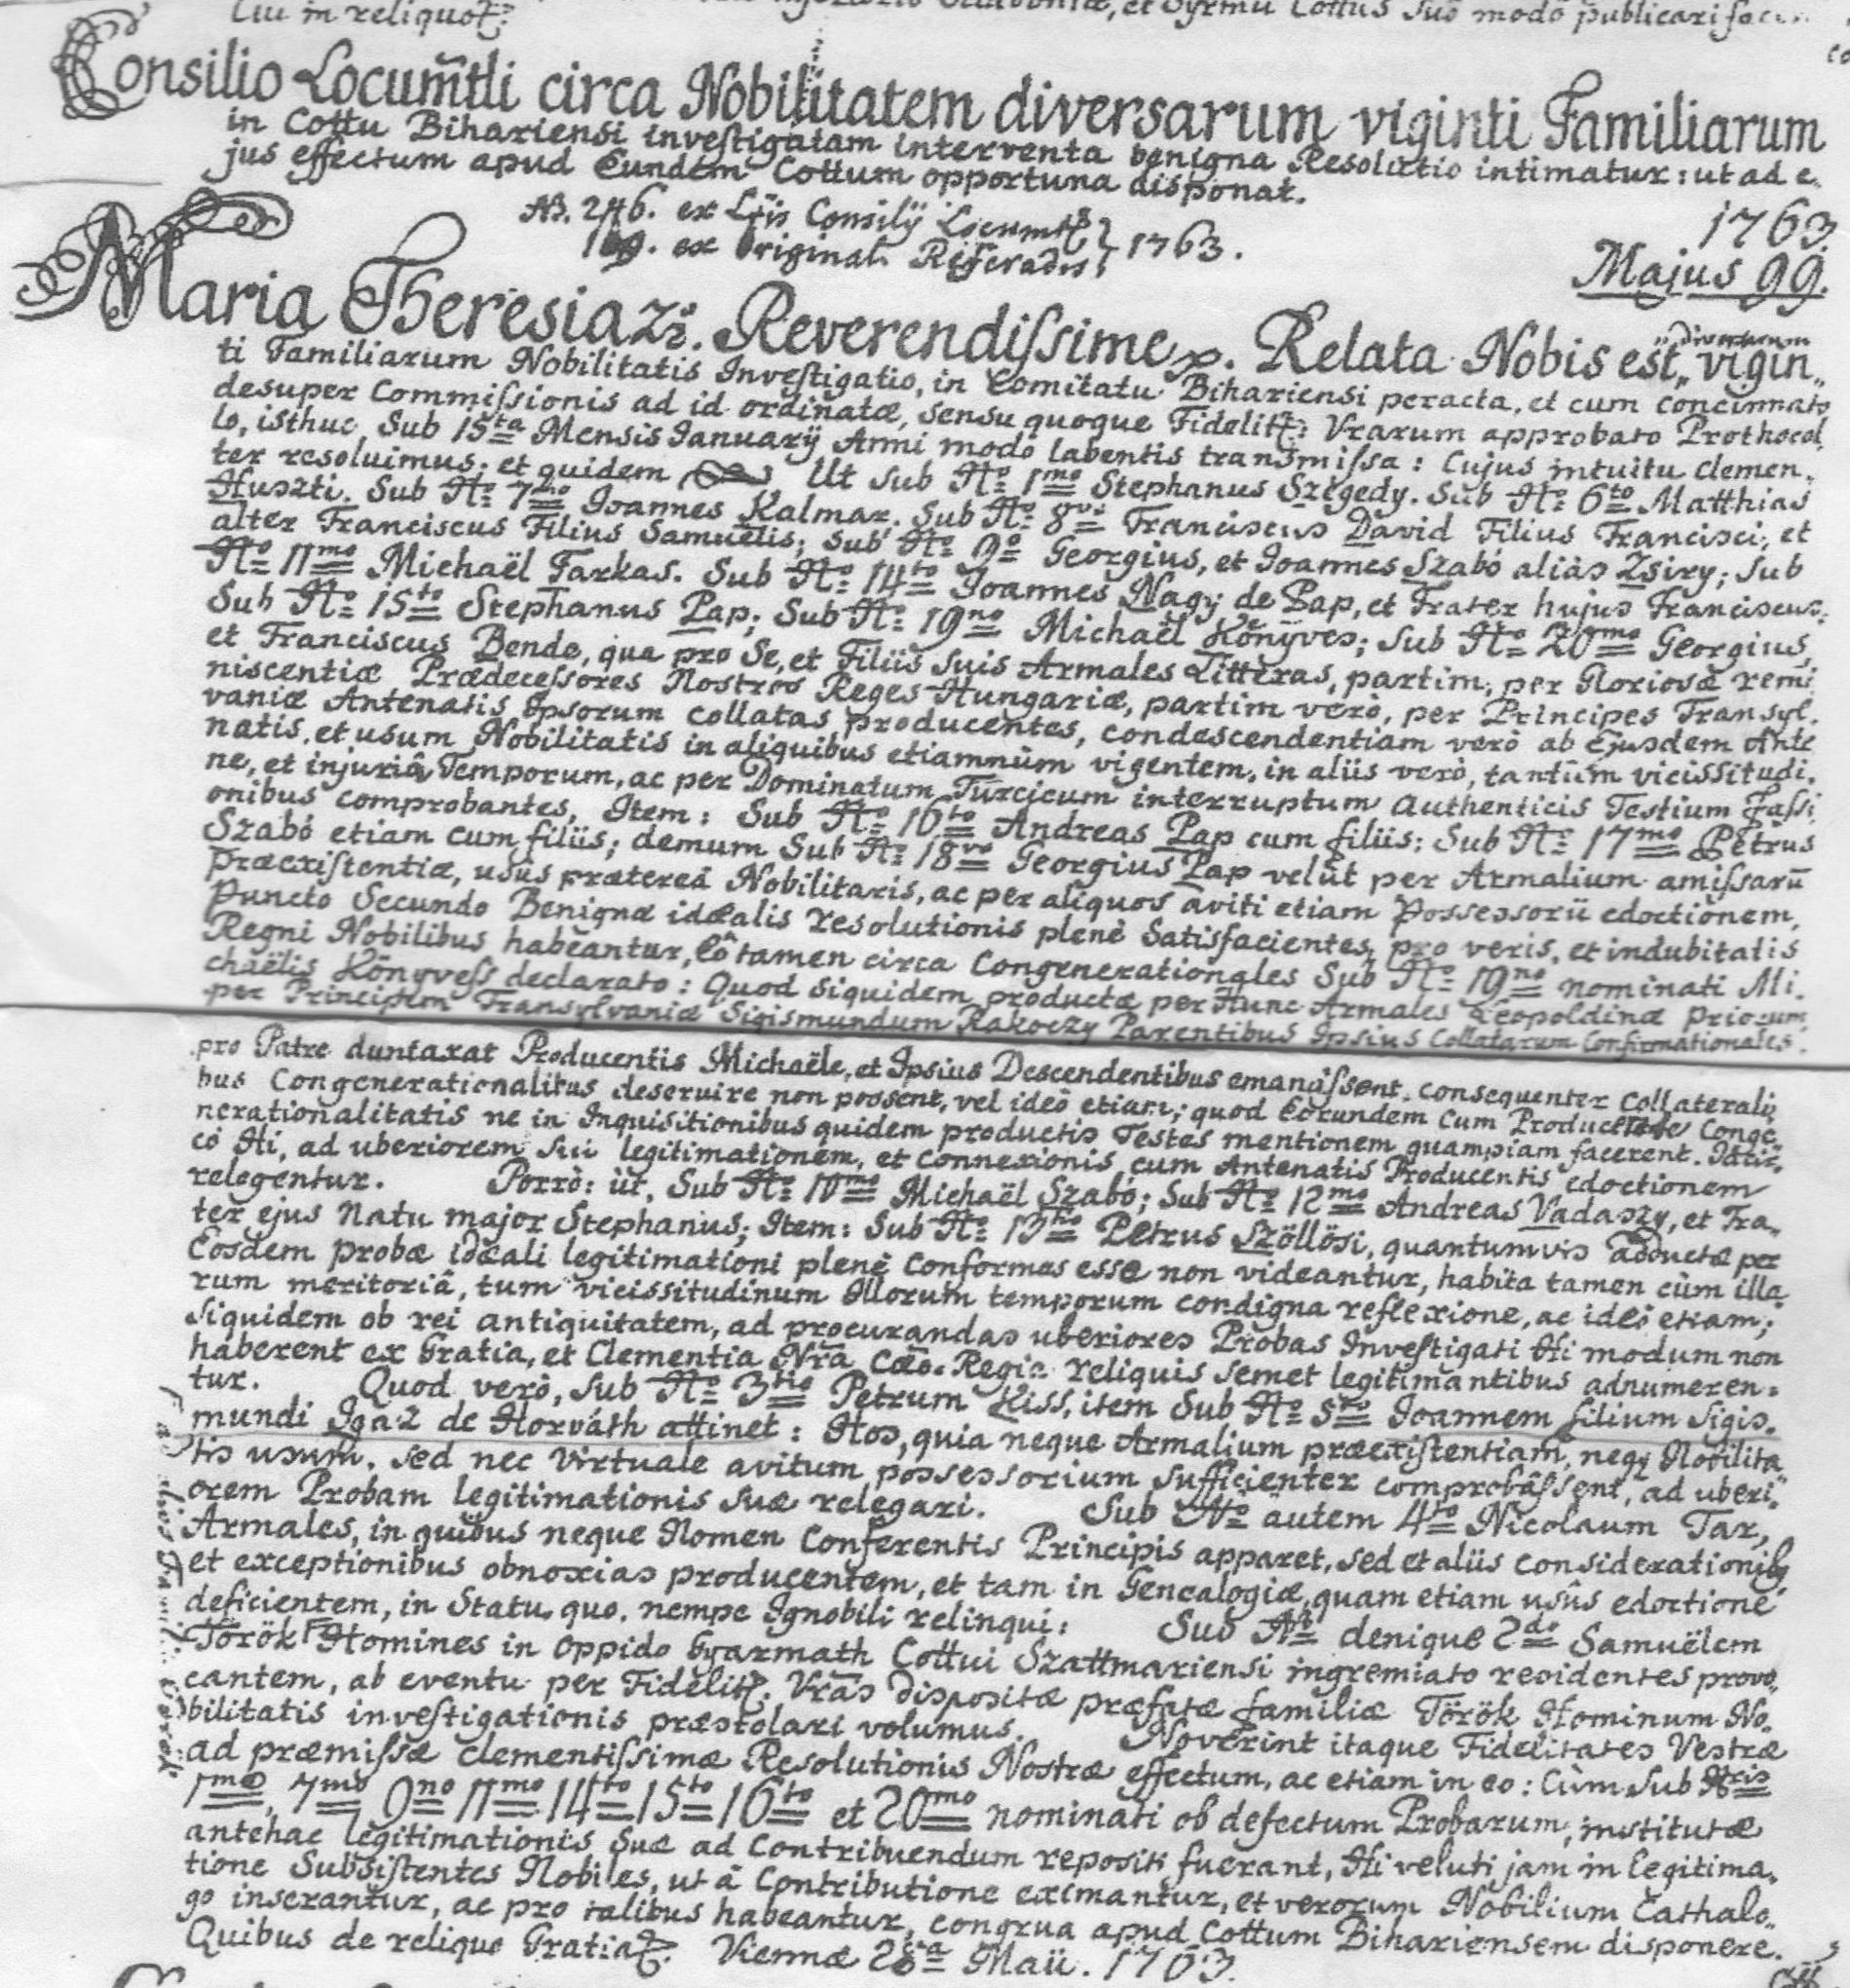 in reliquo
et Syrmii Cottus suo modo publicari
Consilio Locumtli circa Nobilitatem diversarum viginti Familiarum
in Cottu Bihariensi investigatam interventa benigna Resolutio intimatur: ut ad e,
jus effectum apud Eundem Cottum opportuna disponat.
No. 246. ex Lris Consilÿ Locumt
ex Original. Referadis, } 1763.
1763.
Majus 99.
Maria Theresia &. Reverendissime p. Relata Nobis est, diversarum vigin,,
ti Familiarum Nobilitatis Investigatio, in Comitatu Bihariensi peracta, et cum concinnato
desuper Commissionis ad id ordinatæ, sensu quoque Fidelitt: Vrarum approbato Prothocol,
lo, isthuc Sub 15ta Mensis Ianuarÿ Anni modo labentis transmissa: Cujus intuitu clemen,
ter resoluimus; et quidem Ut Sub No 1mo Stephanus Szegedy. Sub No 6to Matthias
Huszti. Sub No 7mo Joannes Kalmar. Sub No 8vo Franciscus David Filius Francisci, et
alter Franciscus Filius Samuelis; Sub No 9o Georgius, et Joannes Szabó aliàs Zsiry; Sub
No 11mo Michaël Farkas. Sub No 14to Joannes Nagy de Pap, et Frater hujus Franciscus.
Sub No 15to Stephanus Pap; Sub No 19no Michaël Könÿves; Sub No 20mo Georgius,
et Franciscus Bende, qua pro Se, et Filiis suis Armales Litteras, partim, per Gloriosæ remi
niscentiæ Prædecessores Nostros Reges Hungariæ, partim verò, per Principes Transyl.
vaniæ Antenatis Ipsorum collatas producentes, condescendentiam verò ab Ejusdem Ante
natis, et usum Nobilitatis in aliquibus etiamnùm vigentem, in aliis verò, tantùm vicissitudi,
ne, et injuriâ Temporum, ac per Dominatum Turcicum interruptum Authenticis Testium Fassi
onibus comprobantes, Item: Sub No 16to Andreas Pap cum filiis: Sub No 17mo Petrus
Szabó etiam cum filiis; demum Sub No 18vo Georgius Pap velùt per Armalium amissarū
præexistentiæ, usûs prætereà Nobilitaris, ac per aliquos aviti etiam Possessorii edoctionem,
Puncto Secundo Benignæ idæalis resolutionis plenè Satisfacientes, pro veris, et indubitatis
Regni Nobilibus habeantur, Eô tamen circa Congenerationales Sub No 19no nominati Mi,
chaëlis Könyvess declarato: Quod siquidem productæ per Hunc Armales Leopoldinæ priorum
per Principem Transylvaniæ Sigismundum Rakoczy Parentibus Ipsius Collatarum Confirmationales.
pro Patre duntaxat Producentis Michaële, et Ipsius Descendentibus emanâssent. consequenter Collaterali,
bus Congenerationalibus deservire non possent, vel ideò etiam; quod Eorundem Cum Producente Conge,
nerationalitatis ne in Inquisitionibus quidem productis Testes mentionem quampiam facerent. Idcir,
cò Hi, ad uberiorem sui legitimationem, et connexionis cum Antenatis Producentis edoctionem
relegentur. Porrò: ùt, Sub No 10mo Michaël Szabó; Sub No 12mo Andreas Vadaszy, et Fra,
ter ejus Natu major Stephanus; Item: Sub No 13tio Petrus Szöllösi, quantumvis adductæ per
Eosdem probæ idæali legitimationi plenè Conformes esse non videantur, habita tamen cùm illa
rum meritoriâ, tum vicissitudinum Illorum temporum condigna reflexione, ac ideò etiam;
Siquidem ob rei antiquitatem, ad procurandas uberiores Probas Investigati Hi modum non
haberent ex Gratia, et Clementia Nrâ Cæo. Regia reliquis semet legitimantibus adnumeren,
tur. Quod verò, Sub No 3tio Petrum Kiss, item Sub No 5to Joannem filium Sigis,
mundi Igaz de Horváth attinet: Hos, quia neque Armalium præexistentiam, neqz Nobilita
tis usum. sed nec Virtuale avitum possessorium sufficienter comprobâssent, ad uberi,
orem Probam legitimationis suæ relegari. Sub No autem 4to Nicolaum Tar,
Armales, in quibus neque Nomen Conferentis Principis apparet, sed et aliis considerationib,
et exceptionibus obnoxias producentem, et tam in Genealogiæ, quam etiam usûs edoctione
deficientem, in Statu quo. nempe Ignobili relinqui: Sub No denique 2do Samuëlem
Török Homines in Oppido Gyarmath Cottui Szattmariensi ingremiato residentes provo,
cantem, ab eventu per Fidelitt: Vrās dispositæ præfatæ familiæ Török Hominum No,
bilitatis investigationis præstolari volumus. Noverint itaque Fidelitates Vestræ
ad præmissæ clementissimæ Resolutionis Nostræ effectum, ac etiam in eo: Cùm sub Nris
1mo, 7mo 9no 11mo 14to 15to 16to et 20mo nominati ob defectum Probarum, institutæ
antehac legitimationis suæ ad Contribuendum repositi fuerant, Hi veluti jam in legitima,
tione Subsistentes Nobiles, ut à Contributione eximantur, et verorum Nobilium Cathalo,
go inserantur, ac pro talibus habeantur, congrua apud Cottum Bihariensem disponere.
Quibus de reliquo Gratia. Viennæ 28a Maii. 1763.